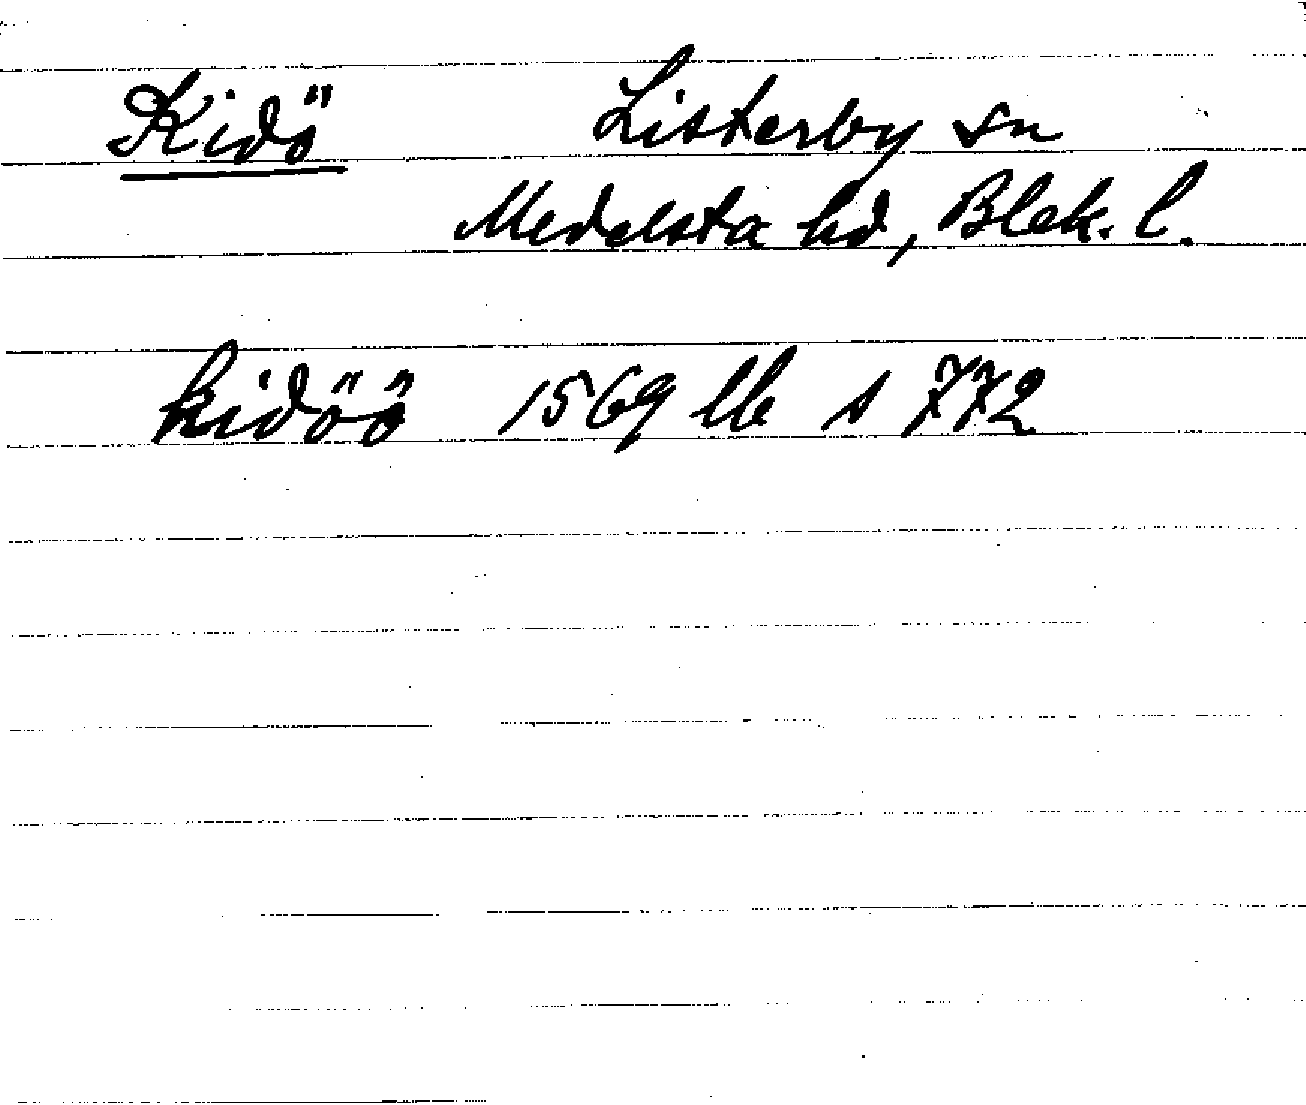 Kidö Listerby sn
Medelsta hd, Blek. l.
kidöö 1569 llb s 772